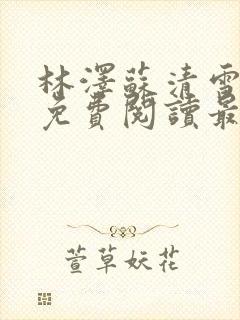 林澤蘇清雪
免費閱讀最
萱草妖花